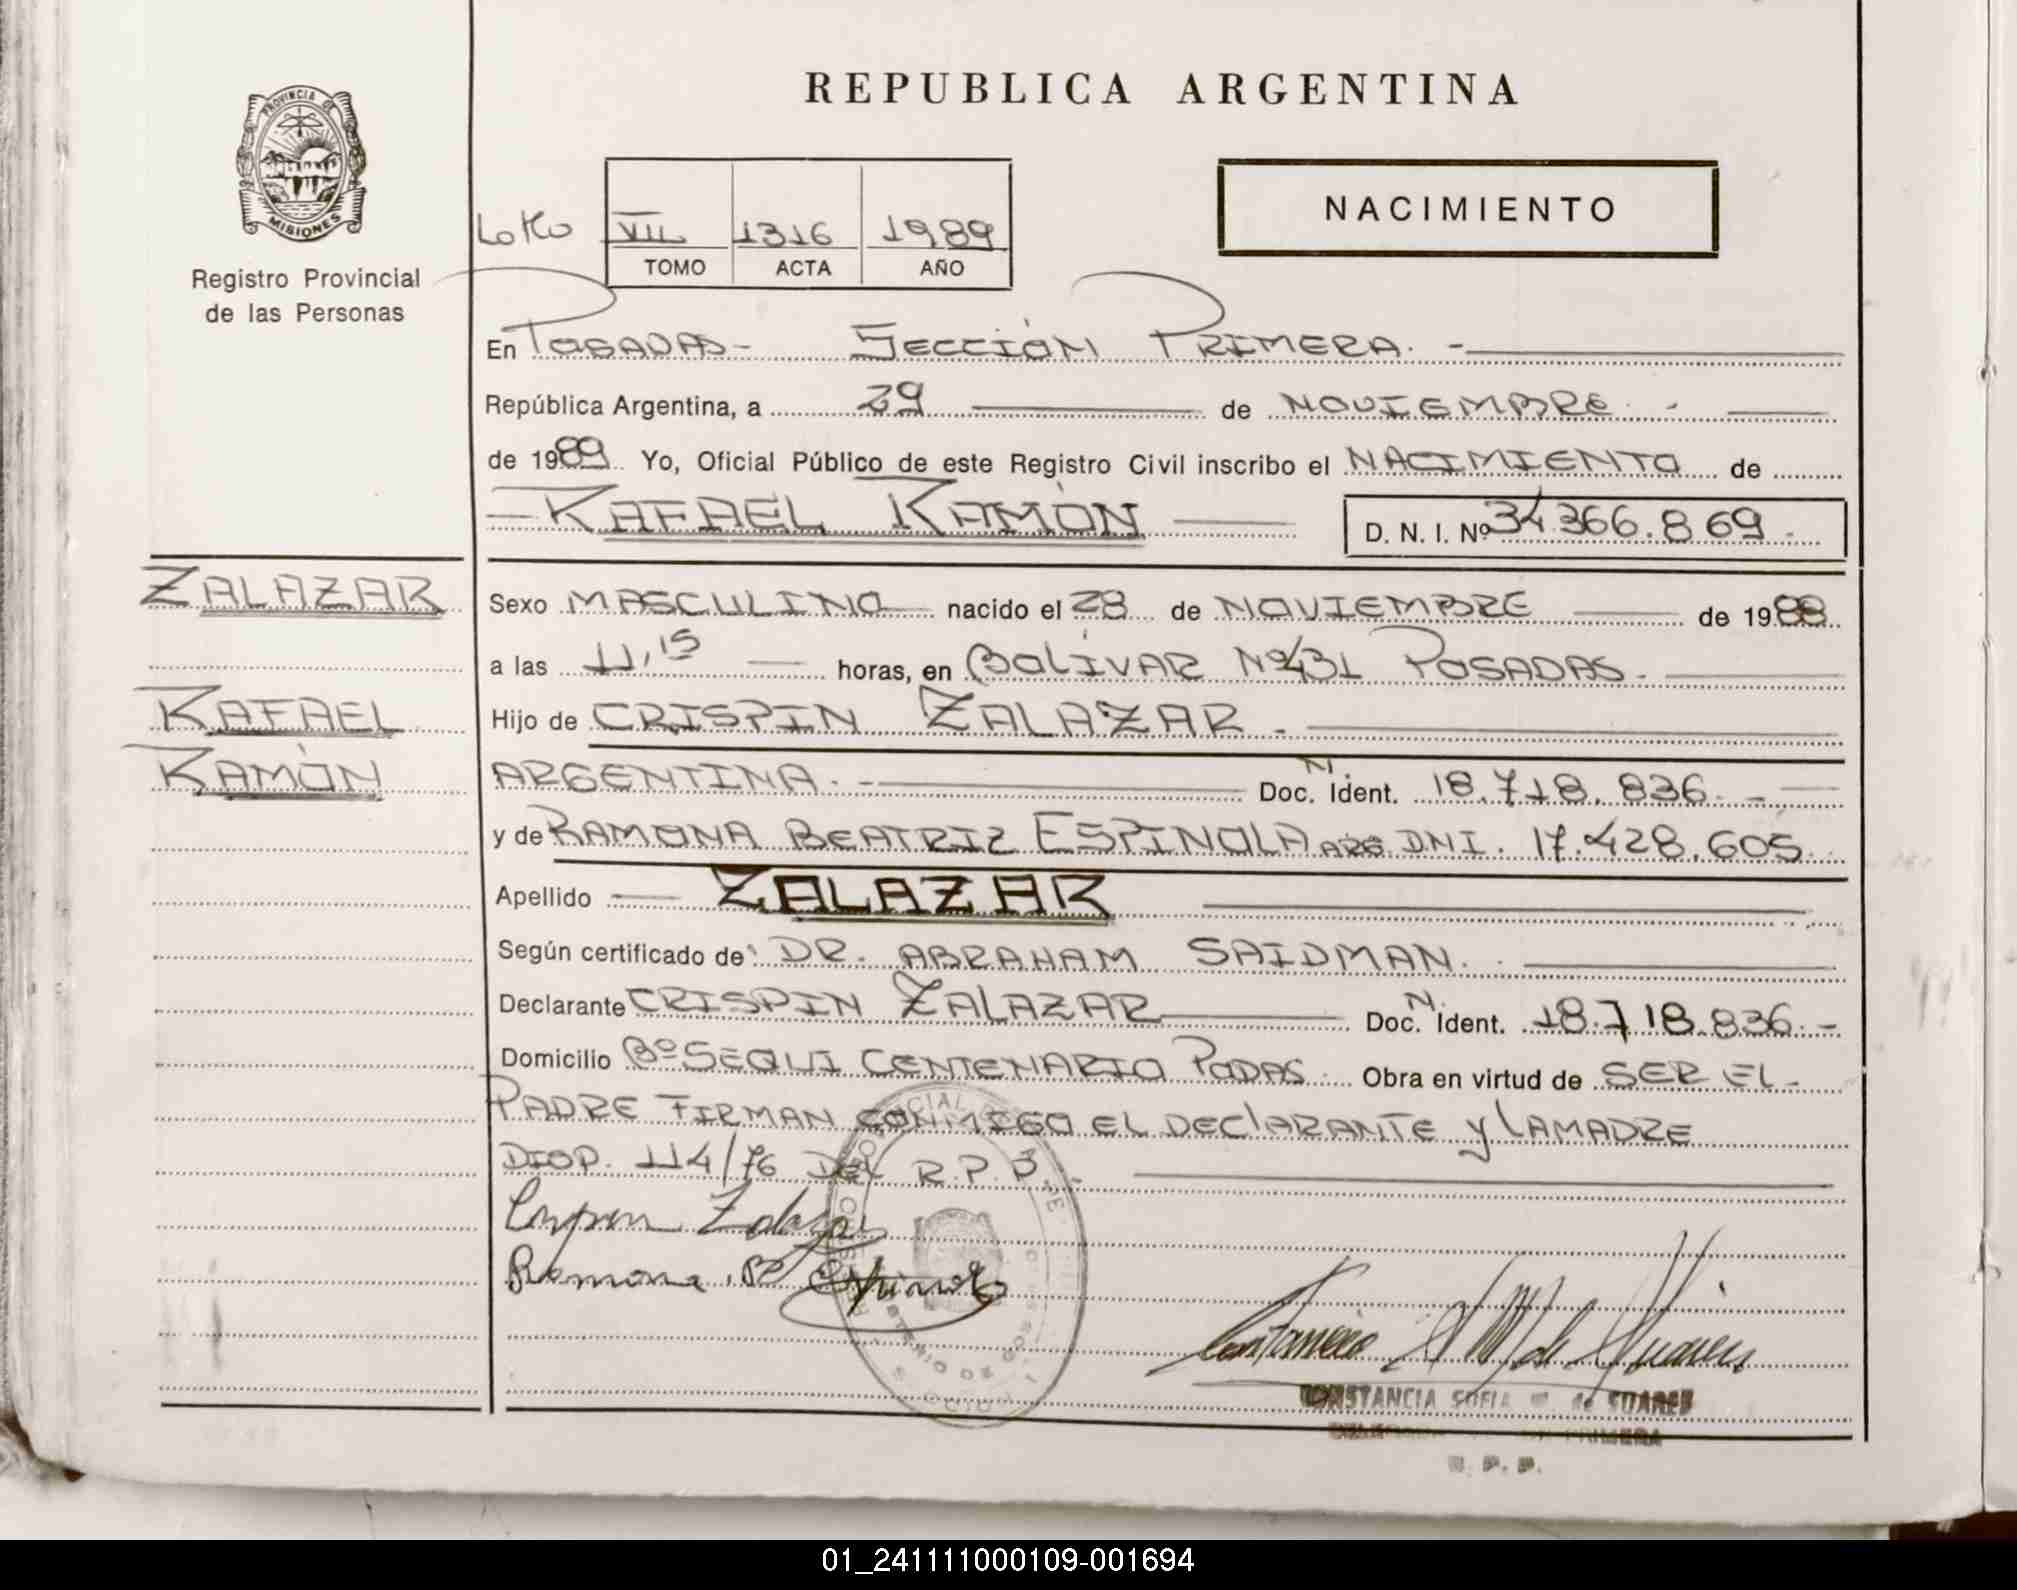 REPUBLICA ARGENTINA
PROVINCIA DE
MISIONES
Registro Provincial
de las Personas
NACIMIENTO
VII 1316 1989
TOMO ACTA AÑO
En POSADAS- SECCIÓN PRIMERA. -
República Argentina, a 29 de NOVIEMBRE. -
de 1989. Yo, Oficial Público de este Registro Civil inscribo el NACIMIENTO de
- RAFAEL RAMÓN D. N. I. Nº 34.366.869.-
ZALAZAR
RAFAEL
RAMÓN
Sexo MASCULINO nacido el 28 de NOVIEMBRE de 1988
a las 11,15 horas, en BOLÍVAR Nº431 POSADAS.
Hijo de CRISPIN ZALAZAR. -
ARGENTINA. - Doc. N. Ident. 18.718.836. -
y de RAMONA BEATRIZ ESPINOLA ARG DNI. 17.428.605.
Apellido ZALAZAR
Según certificado de: DR. ABRAHAM SAIDMAN.
Declarante CRISPIN ZALAZAR Doc. N. Ident. 18.718.836. -
Domicilio Bº SEQUI CENTENARIO PODAS. Obra en virtud de SER EL-
PADRE FIRMAN CONMIGO EL DECLARANTE y LA MADRE
DISP. 114/76 DEL R.P.P. -
Crispin Zalazar
Ramona B. Espinola
CONSTANCIA SOFIA de SUAREZ
PRIMERA
R. P. P.
01_241111000109-001694